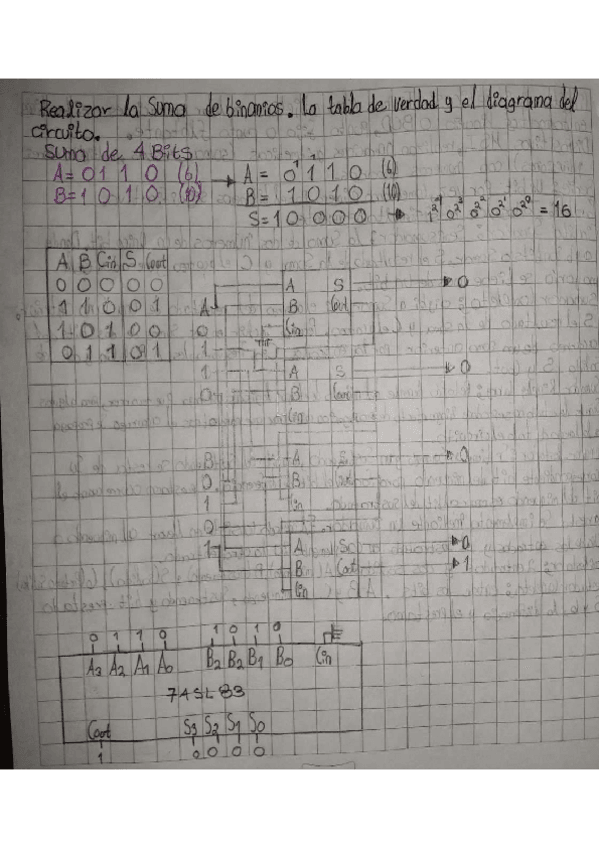 Realizar la Suma de binarios. La tabla de verdad y el diagrama del
circuito.
Suma de 4 Bits
A= 0 1 1 0 (6)
B= 1 0 1 0 (10)
A = 0 1 1 0 (6)
B = 1 0 1 0 (10)
S= 1 0 0 0 0
= 16
A B Cin S Cout
0 0 0 0 0
1 1 0 0 1
1 0 1 0 0
0 1 1 0 1
A S 0
A B Cout
0 Cin
1
1 A S 0
0 B
Cin
B A S 0
0 B
1 Cin
0
1 A S 0
B Cout 1
Cin
0 1 1 0 1 0 1 0
A3 A2 A1 A0 B2 B2 B1 B0 Cin
74SL83
Cout S3 S2 S1 S0
1 0 0 0 0